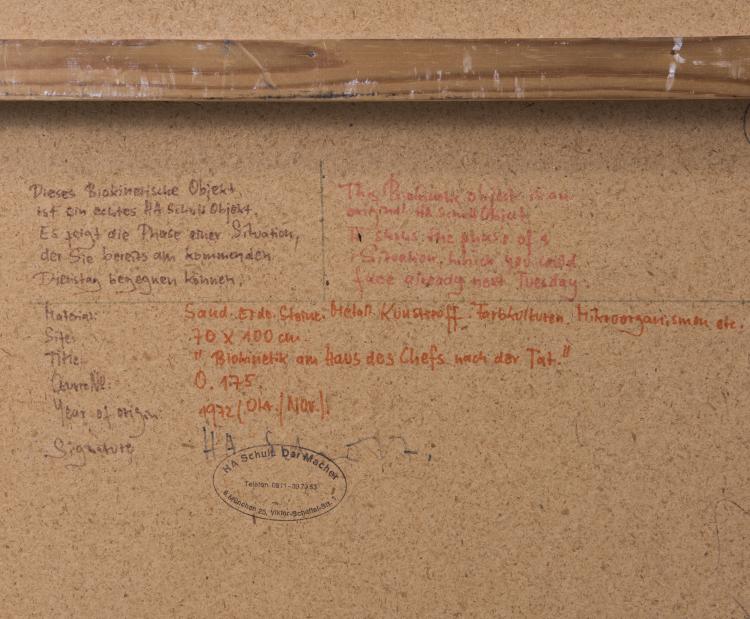 Dieses Biokinetische Objekt,
ist ein echtes HA Schult Objekt.
Es zeigt die Phase einer Situation,
der Sie bereits am kommenden
Dienstag begegnen können.
This Biokinetic object is an
original HA Schult Object
It shows the phase of a
Situation, which you could
face already next Tuesday.
Material: Sand. Erde. Steine. Metall. Kunststoff. Farbkulturen. Mikroorganismen etc.
Size: 70 x 100 cm.
Title: "Biokinetik am Haus des Chefs nach der Tat."
Œuvre №: O. 175.
Year of origin: 1972 (Okt./Nov.).
Signature - HA Schult 72.
HA Schult Der Macher
Telefon 0811-
8 München 25, Viktor-Scheffel-Str.